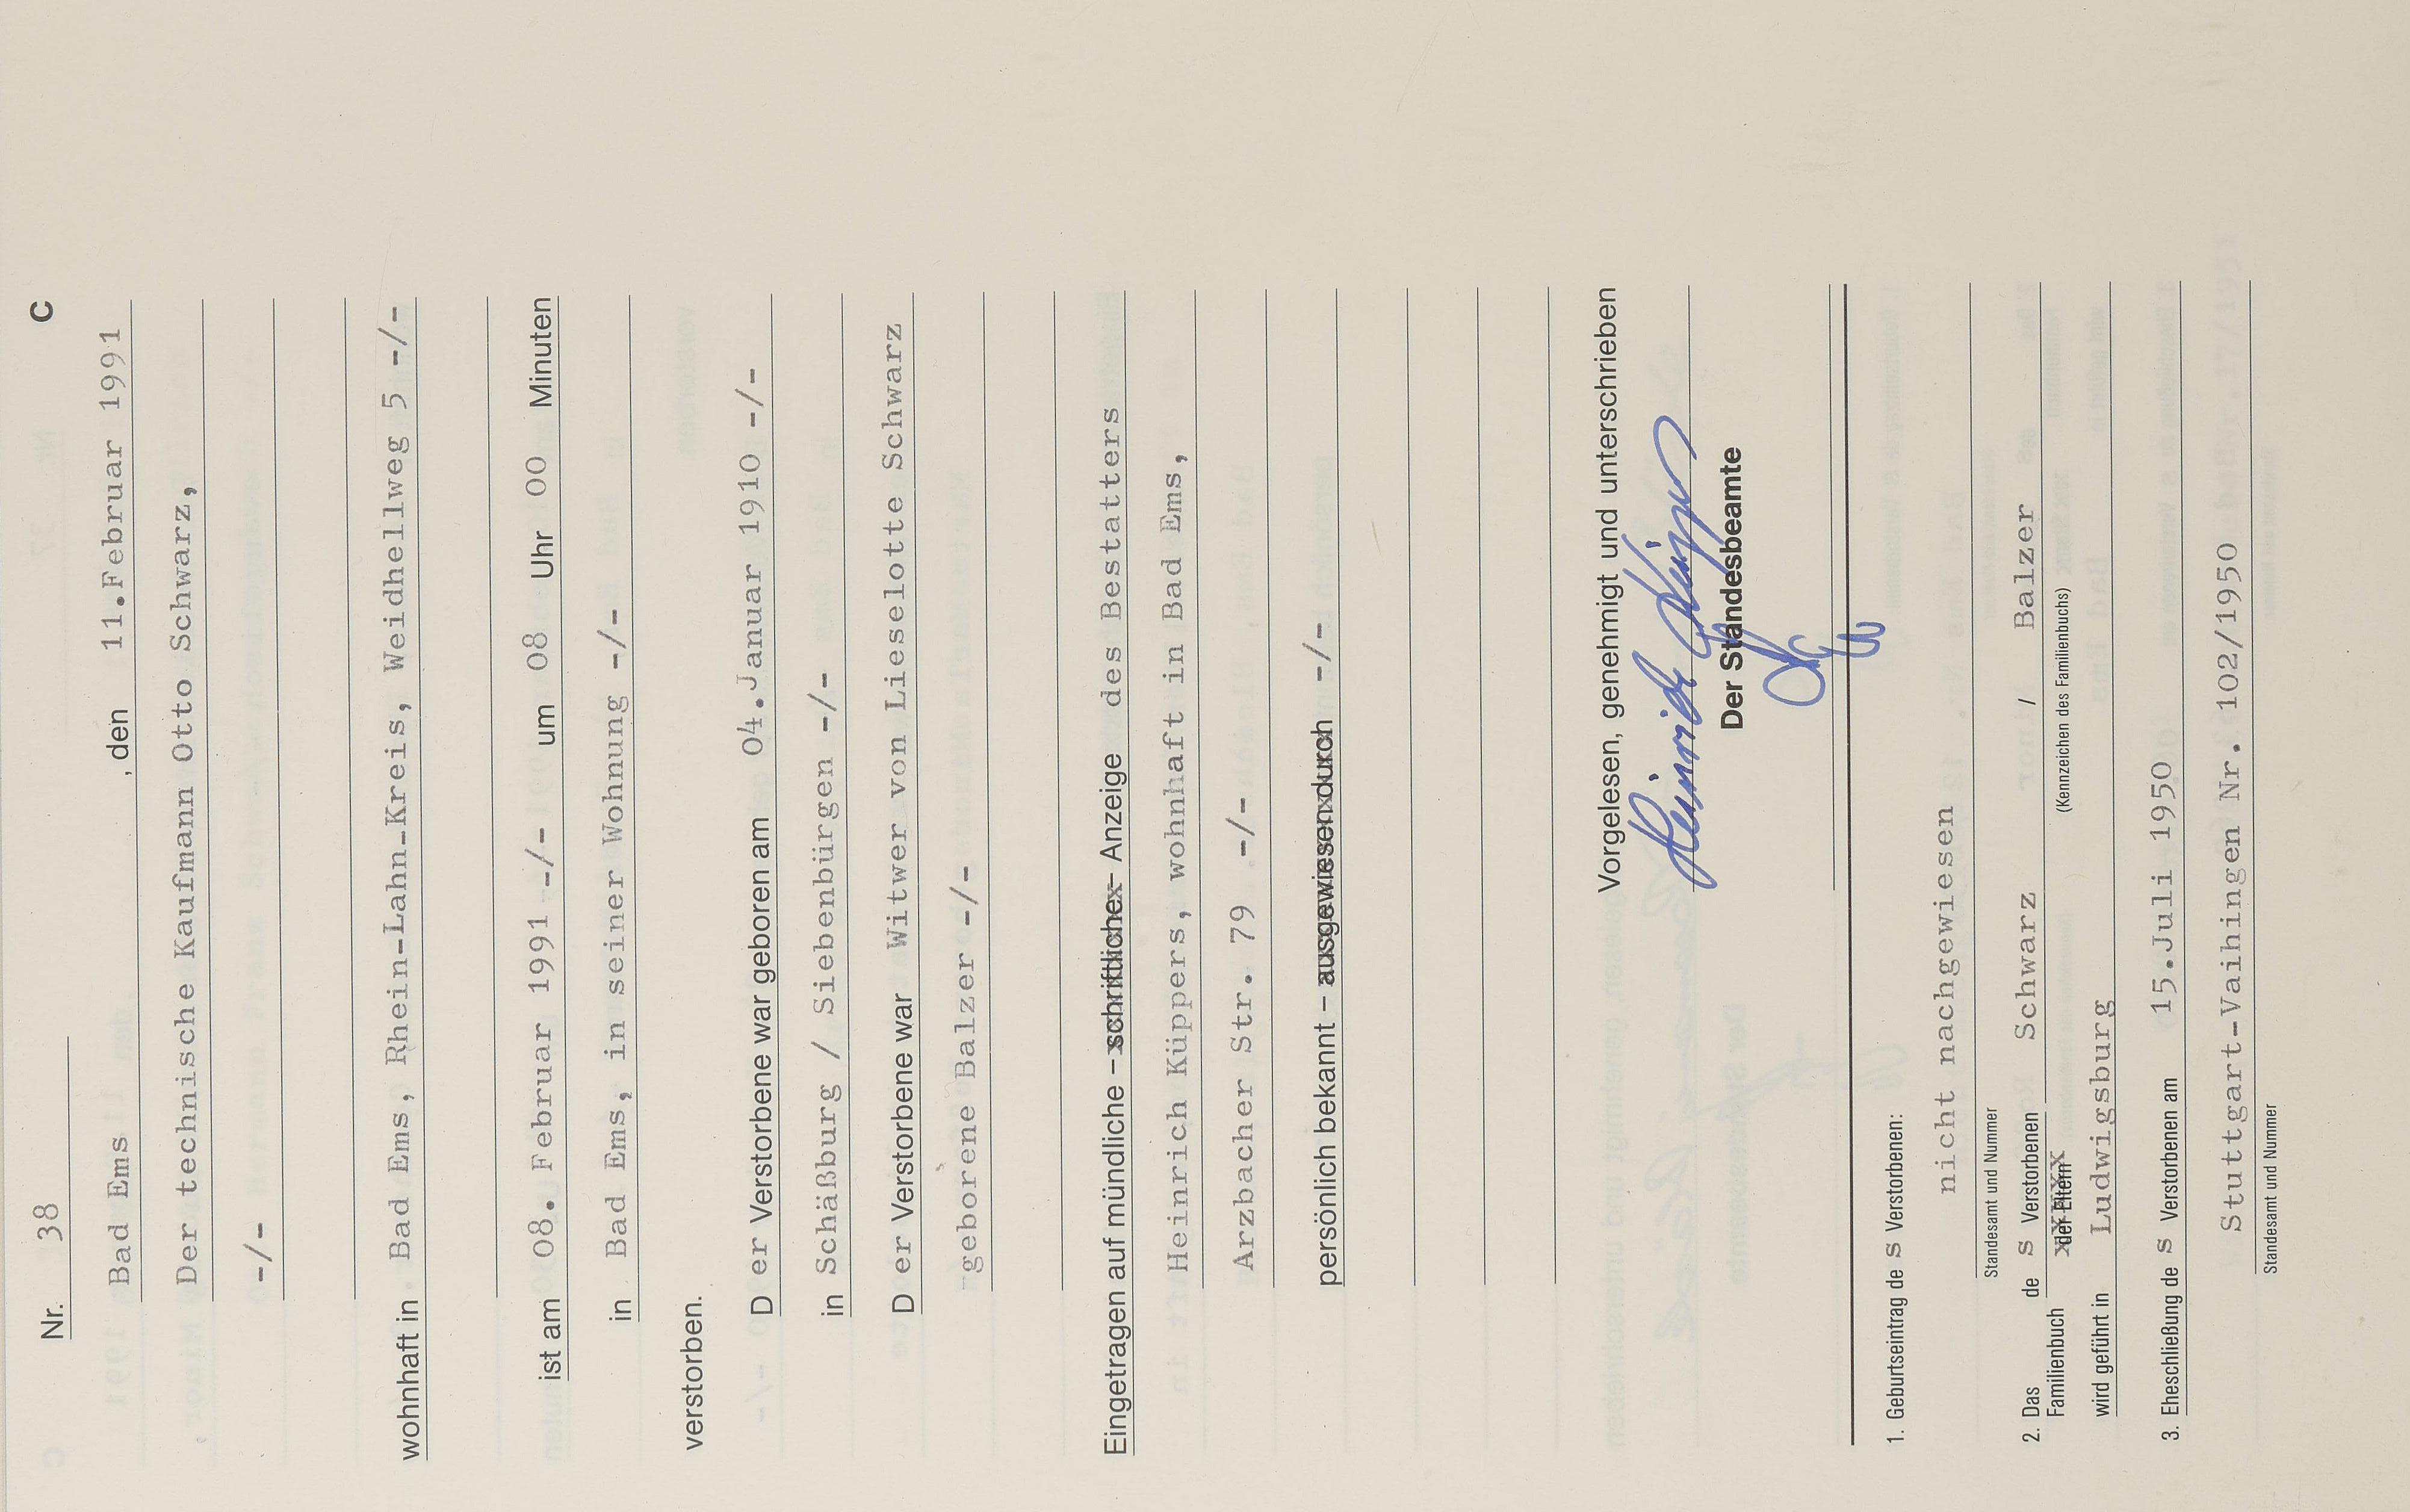 Nr. 38 C
Bad Ems , den 11.Februar 1991
Der technische Kaufmann Otto Schwarz,
-/-
wohnhaft in Bad Ems, Rhein-Lahn-Kreis, Weidhellweg 5 -/-
ist am 08. Februar 1991 -/- um 08 Uhr 00 Minuten
in Bad Ems, in seiner Wohnung -/-
verstorben.
D er Verstorbene war geboren am 04.Januar 1910 -/-
in Schäßburg / Siebenbürgen -/-
D er Verstorbene war Witwer von Lieselotte Schwarz
geborene Balzer -/-
Eingetragen auf mündliche – schriftliche – Anzeige des Bestatters
Heinrich Küppers, wohnhaft in Bad Ems,
Arzbacher Str. 79 -/-
persönlich bekannt – ausgewiesen durch -/-
Vorgelesen, genehmigt und unterschrieben
Heinrich Küppers
Der Standesbeamte
1. Geburtseintrag de s Verstorbenen:
nicht nachgewiesen
Standesamt und Nummer
2. Das Familienbuch de s Verstorbenen der Eltern Schwarz / Balzer
(Kennzeichen des Familienbuchs)
wird geführt in Ludwigsburg
3. Eheschließung de s Verstorbenen am 15.Juli 1950
Stuttgart-Vaihingen Nr. 102/1950
Standesamt und Nummer